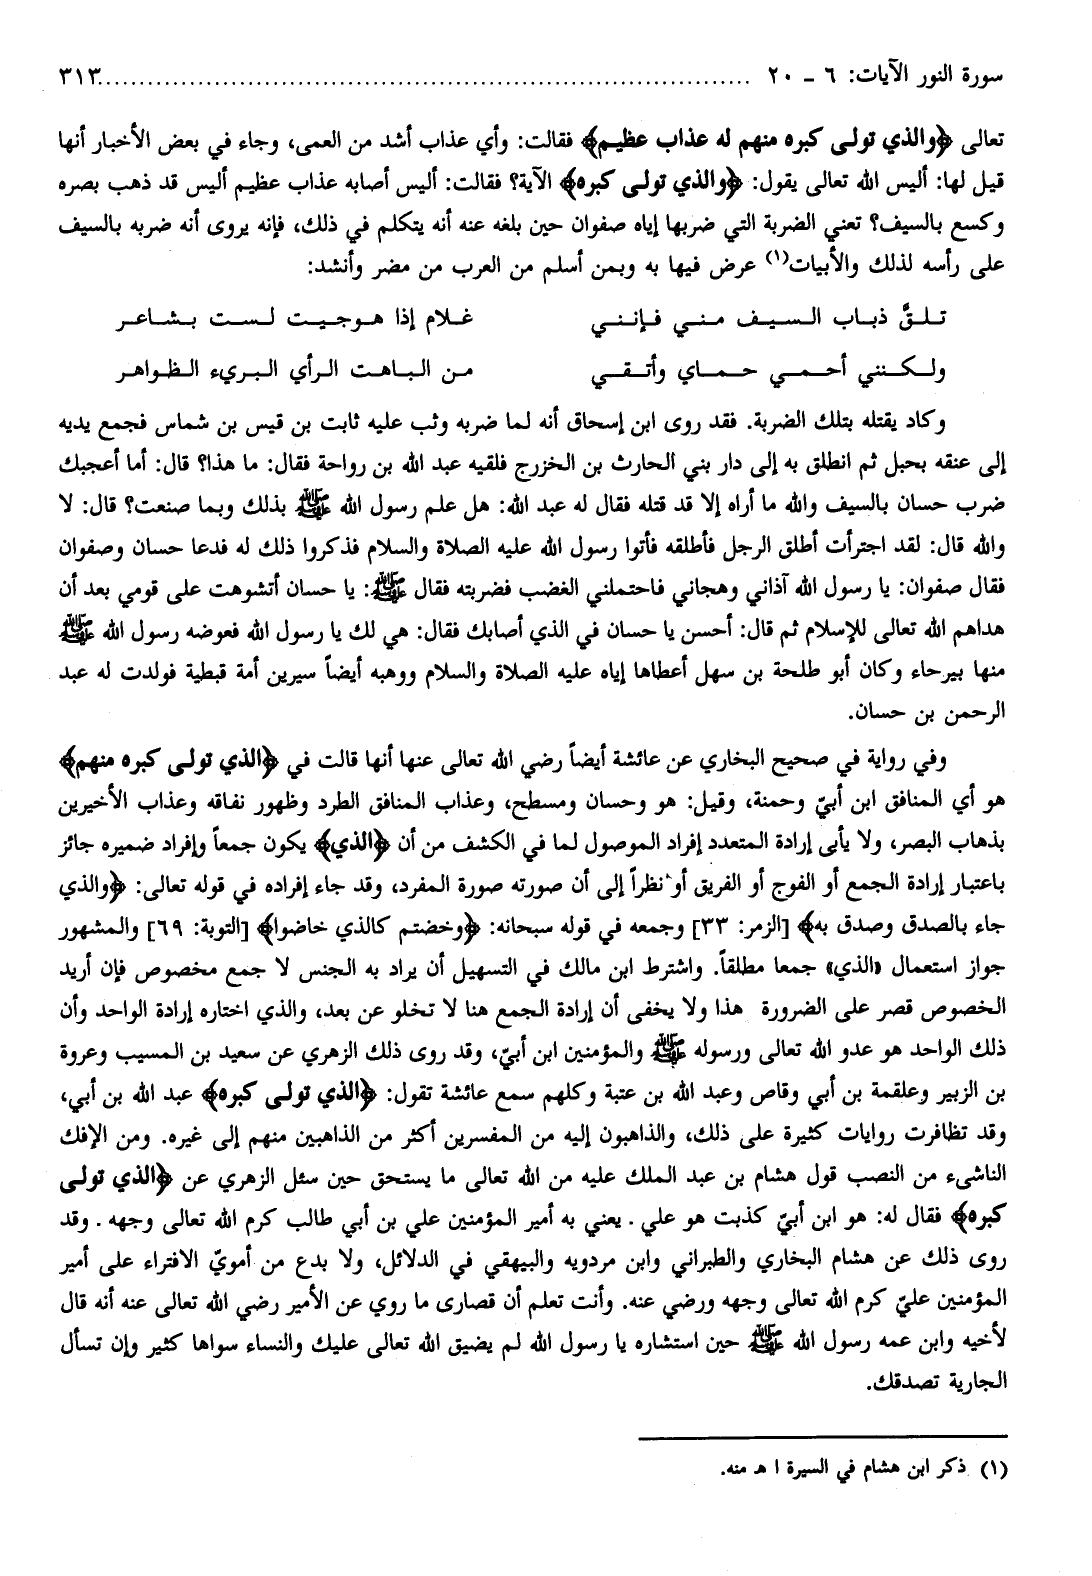 سورة النور الآيات: ٦ ـ ٢٠ ........................................................................ ٣١٣
تعالى ﴿والذي تولى كبره منهم له عذاب عظيم﴾ فقالت: وأي عذاب أشد من العمى، وجاء في بعض الأخبار أنها
قيل لها: أليس الله تعالى يقول: ﴿والذي تولى كبره﴾ الآية؟ فقالت: أليس أصابه عذاب عظيم أليس قد ذهب بصره
وكسع بالسيف؟ تعني الضربة التي ضربها إياه صفوان حين بلغه عنه أنه يتكلم في ذلك، فإنه يروى أنه ضربه بالسيف
على رأسه لذلك والأبيات(١) عرض فيها به وبمن أسلم من العرب من مضر وأنشد:
تـلـقَّ ذبـاب الـسيـف مـنـي فـإنـنـي غـلام إذا هـوجـيـت لـسـت بـشـاعـر
ولـكـنـني أحـمـي حـمـاي وأتـقـي مـن الـبـاهـت الـرأي الـبـريء الـظـواهـر
وكاد يقتله بتلك الضربة. فقد روى ابن إسحاق أنه لما ضربه وثب عليه ثابت بن قيس بن شماس فجمع يديه
إلى عنقه بحبل ثم انطلق به إلى دار بني الحارث بن الخزرج فلقيه عبد الله بن رواحة فقال: ما هذا؟ قال: أما أعجبك
ضرب حسان بالسيف والله ما أراه إلا قد قتله فقال له عبد الله: هل علم رسول الله ﷺ بذلك وبما صنعت؟ قال: لا
والله قال: لقد اجترأت أطلق الرجل فأطلقه فأتوا رسول الله عليه الصلاة والسلام فذكروا ذلك له فدعا حسان وصفوان
فقال صفوان: يا رسول الله آذاني وهجاني فاحتملني الغضب فضربته فقال ﷺ: يا حسان أتشوهت على قومي بعد أن
هداهم الله تعالى للإسلام ثم قال: أحسن يا حسان في الذي أصابك فقال: هي لك يا رسول الله فعوضه رسول الله ﷺ
منها بيرحاء وكان أبو طلحة بن سهل أعطاها إياه عليه الصلاة والسلام ووهبه أيضاً سيرين أمة قبطية فولدت له عبد
الرحمن بن حسان.
وفي رواية في صحيح البخاري عن عائشة أيضاً رضي الله تعالى عنها أنها قالت في ﴿الذي تولى كبره منهم﴾
هو أي المنافق ابن أبيّ وحمنة، وقيل: هو وحسان ومسطح، وعذاب المنافق الطرد وظهور نفاقه وعذاب الأخيرين
بذهاب البصر، ولا يأبى إرادة المتعدد إفراد الموصول لما في الكشف من أن ﴿الذي﴾ يكون جمعاً وإفراد ضميره جائز
باعتبار إرادة الجمع أو الفوج أو الفريق أو نظراً إلى أن صورته صورة المفرد، وقد جاء إفراده في قوله تعالى: ﴿والذي
جاء بالصدق وصدق به﴾ [الزمر: ٣٣] وجمعه في قوله سبحانه: ﴿وخضتم كالذي خاضوا﴾ [التوبة: ٦٩] والمشهور
جواز استعمال «الذي» جمعا مطلقاً. واشترط ابن مالك في التسهيل أن يراد به الجنس لا جمع مخصوص فإن أريد
الخصوص قصر على الضرورة هذا ولا يخفى أن إرادة الجمع هنا لا تخلو عن بعد، والذي اختاره إرادة الواحد وأن
ذلك الواحد هو عدو الله تعالى ورسوله ﷺ والمؤمنين ابن أبيّ، وقد روى ذلك الزهري عن سعيد بن المسيب وعروة
بن الزبير وعلقمة بن أبي وقاص وعبد الله بن عتبة وكلهم سمع عائشة تقول: ﴿الذي تولى كبره﴾ عبد الله بن أبي،
وقد تظافرت روايات كثيرة على ذلك، والذاهبون إليه من المفسرين أكثر من الذاهبين منهم إلى غيره. ومن الإفك
الناشىء من النصب قول هشام بن عبد الملك عليه من الله تعالى ما يستحق حين سئل الزهري عن ﴿الذي تولى
كبره﴾ فقال له: هو ابن أبيّ كذبت هو علي ـ يعني به أمير المؤمنين علي بن أبي طالب كرم الله تعالى وجهه ـ وقد
روى ذلك عن هشام البخاري والطبراني وابن مردويه والبيهقي في الدلائل، ولا بدع من أمويّ الافتراء على أمير
المؤمنين عليّ كرم الله تعالى وجهه ورضي عنه. وأنت تعلم أن قصارى ما روي عن الأمير رضي الله تعالى عنه أنه قال
لأخيه وابن عمه رسول الله ﷺ حين استشاره يا رسول الله لم يضيق الله تعالى عليك والنساء سواها كثير وإن تسأل
الجارية تصدقك.
(١) ذكر ابن هشام في السيرة ا هـ منه.